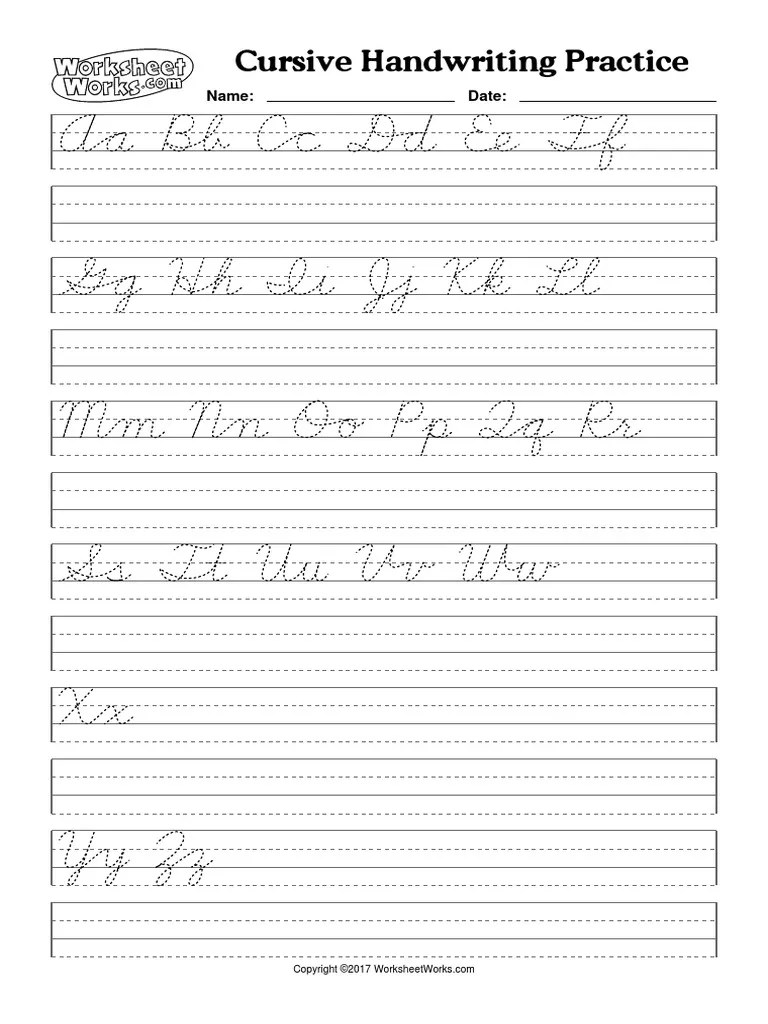 Worksheet
Works.com
Cursive Handwriting Practice
Name: Date:
Aa Bb Cc Dd Ee Ff
Gg Hh Ii Jj Kk Ll
Mm Nn Oo Pp Qq Rr
Ss Tt Uu Vv Ww
Xx
Yy Zz
Copyright ©2017 WorksheetWorks.com